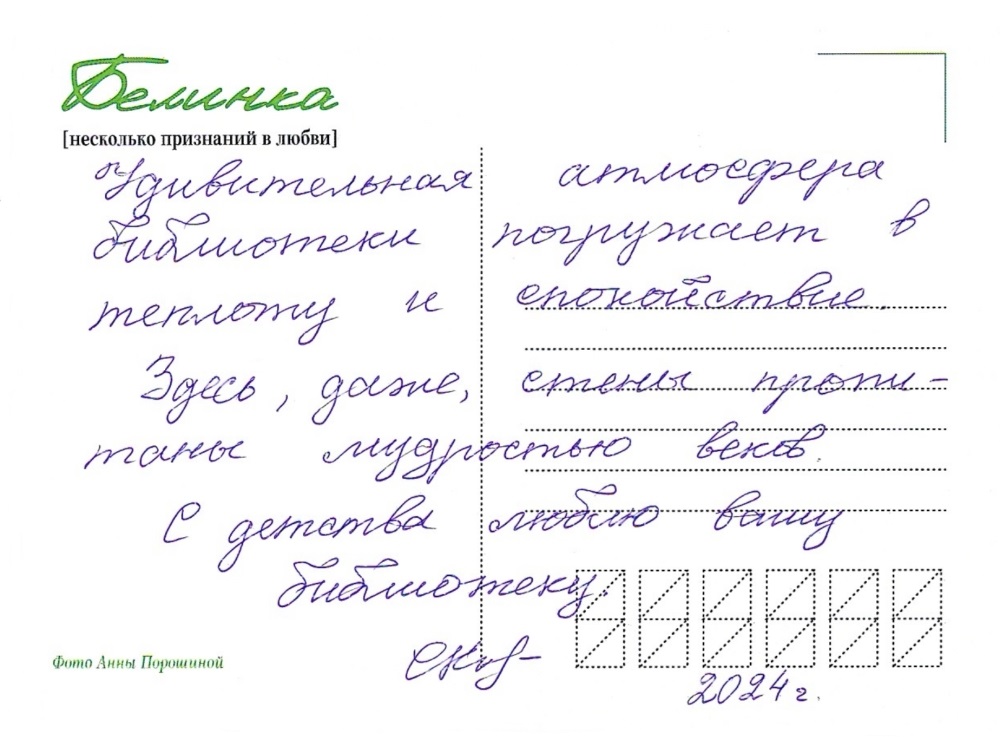 Белинка
[несколько признаний в любви]
Удивительная атмосфера
библиотеки погружает в
теплоту и спокойствие.
Здесь, даже, стены пропи-
таны мудростью веков.
С детства люблю вашу
библиотеку.
2024 г.
Фото Анны Порошиной